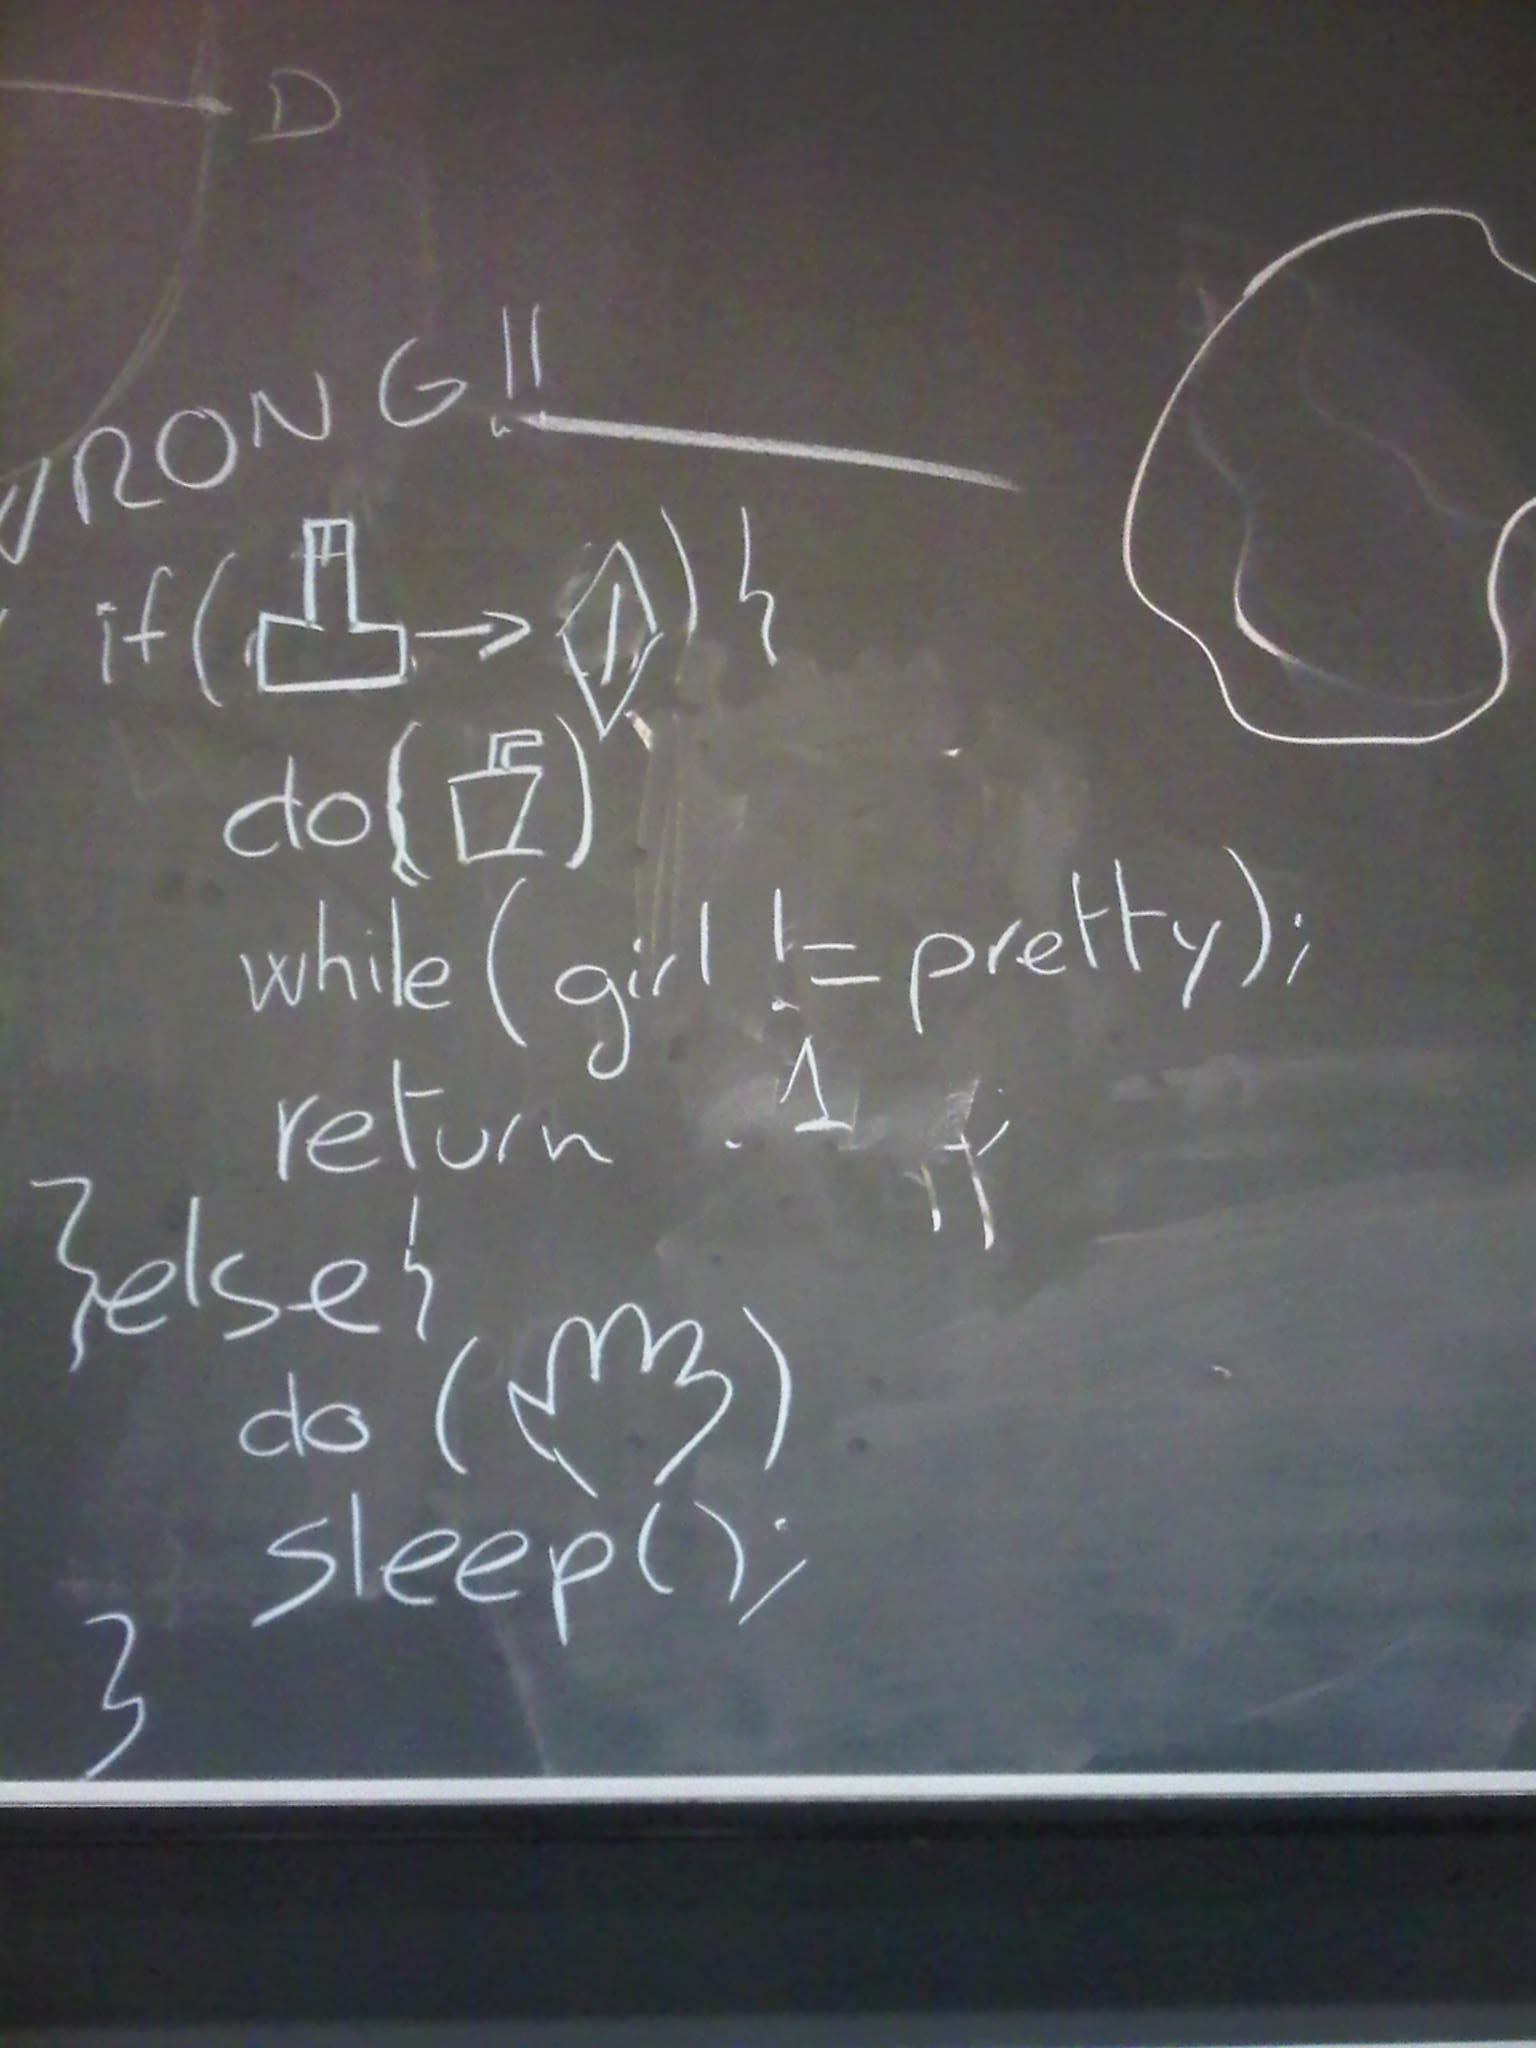 D
WRONG!!
if( → ){
do( )
while(girl != pretty);
return 1 ;
}else{
do ( )
sleep();
}